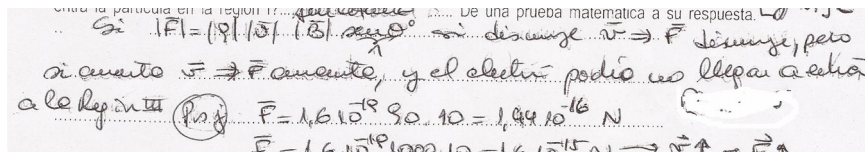 entra la partícula en la región I?... De una prueba matemática a su respuesta.
Si |F̄| = |q| |v̄| |B̄| sen 90° si disminuye v̄ ⇒ F̄ disminuye, pero
si aumento v̄ ⇒ F̄ aumenta, y el electrón podría no llegar a entrar
a la Región III Por ej F̄ = 1,6 10⁻¹⁹ 90 . 10 = 1,44 10⁻¹⁶ N
F̄ = 1,6 10⁻¹⁹ 1000 . 10 = 1,6 10⁻¹⁵ N → v̄↑ → F̄↑